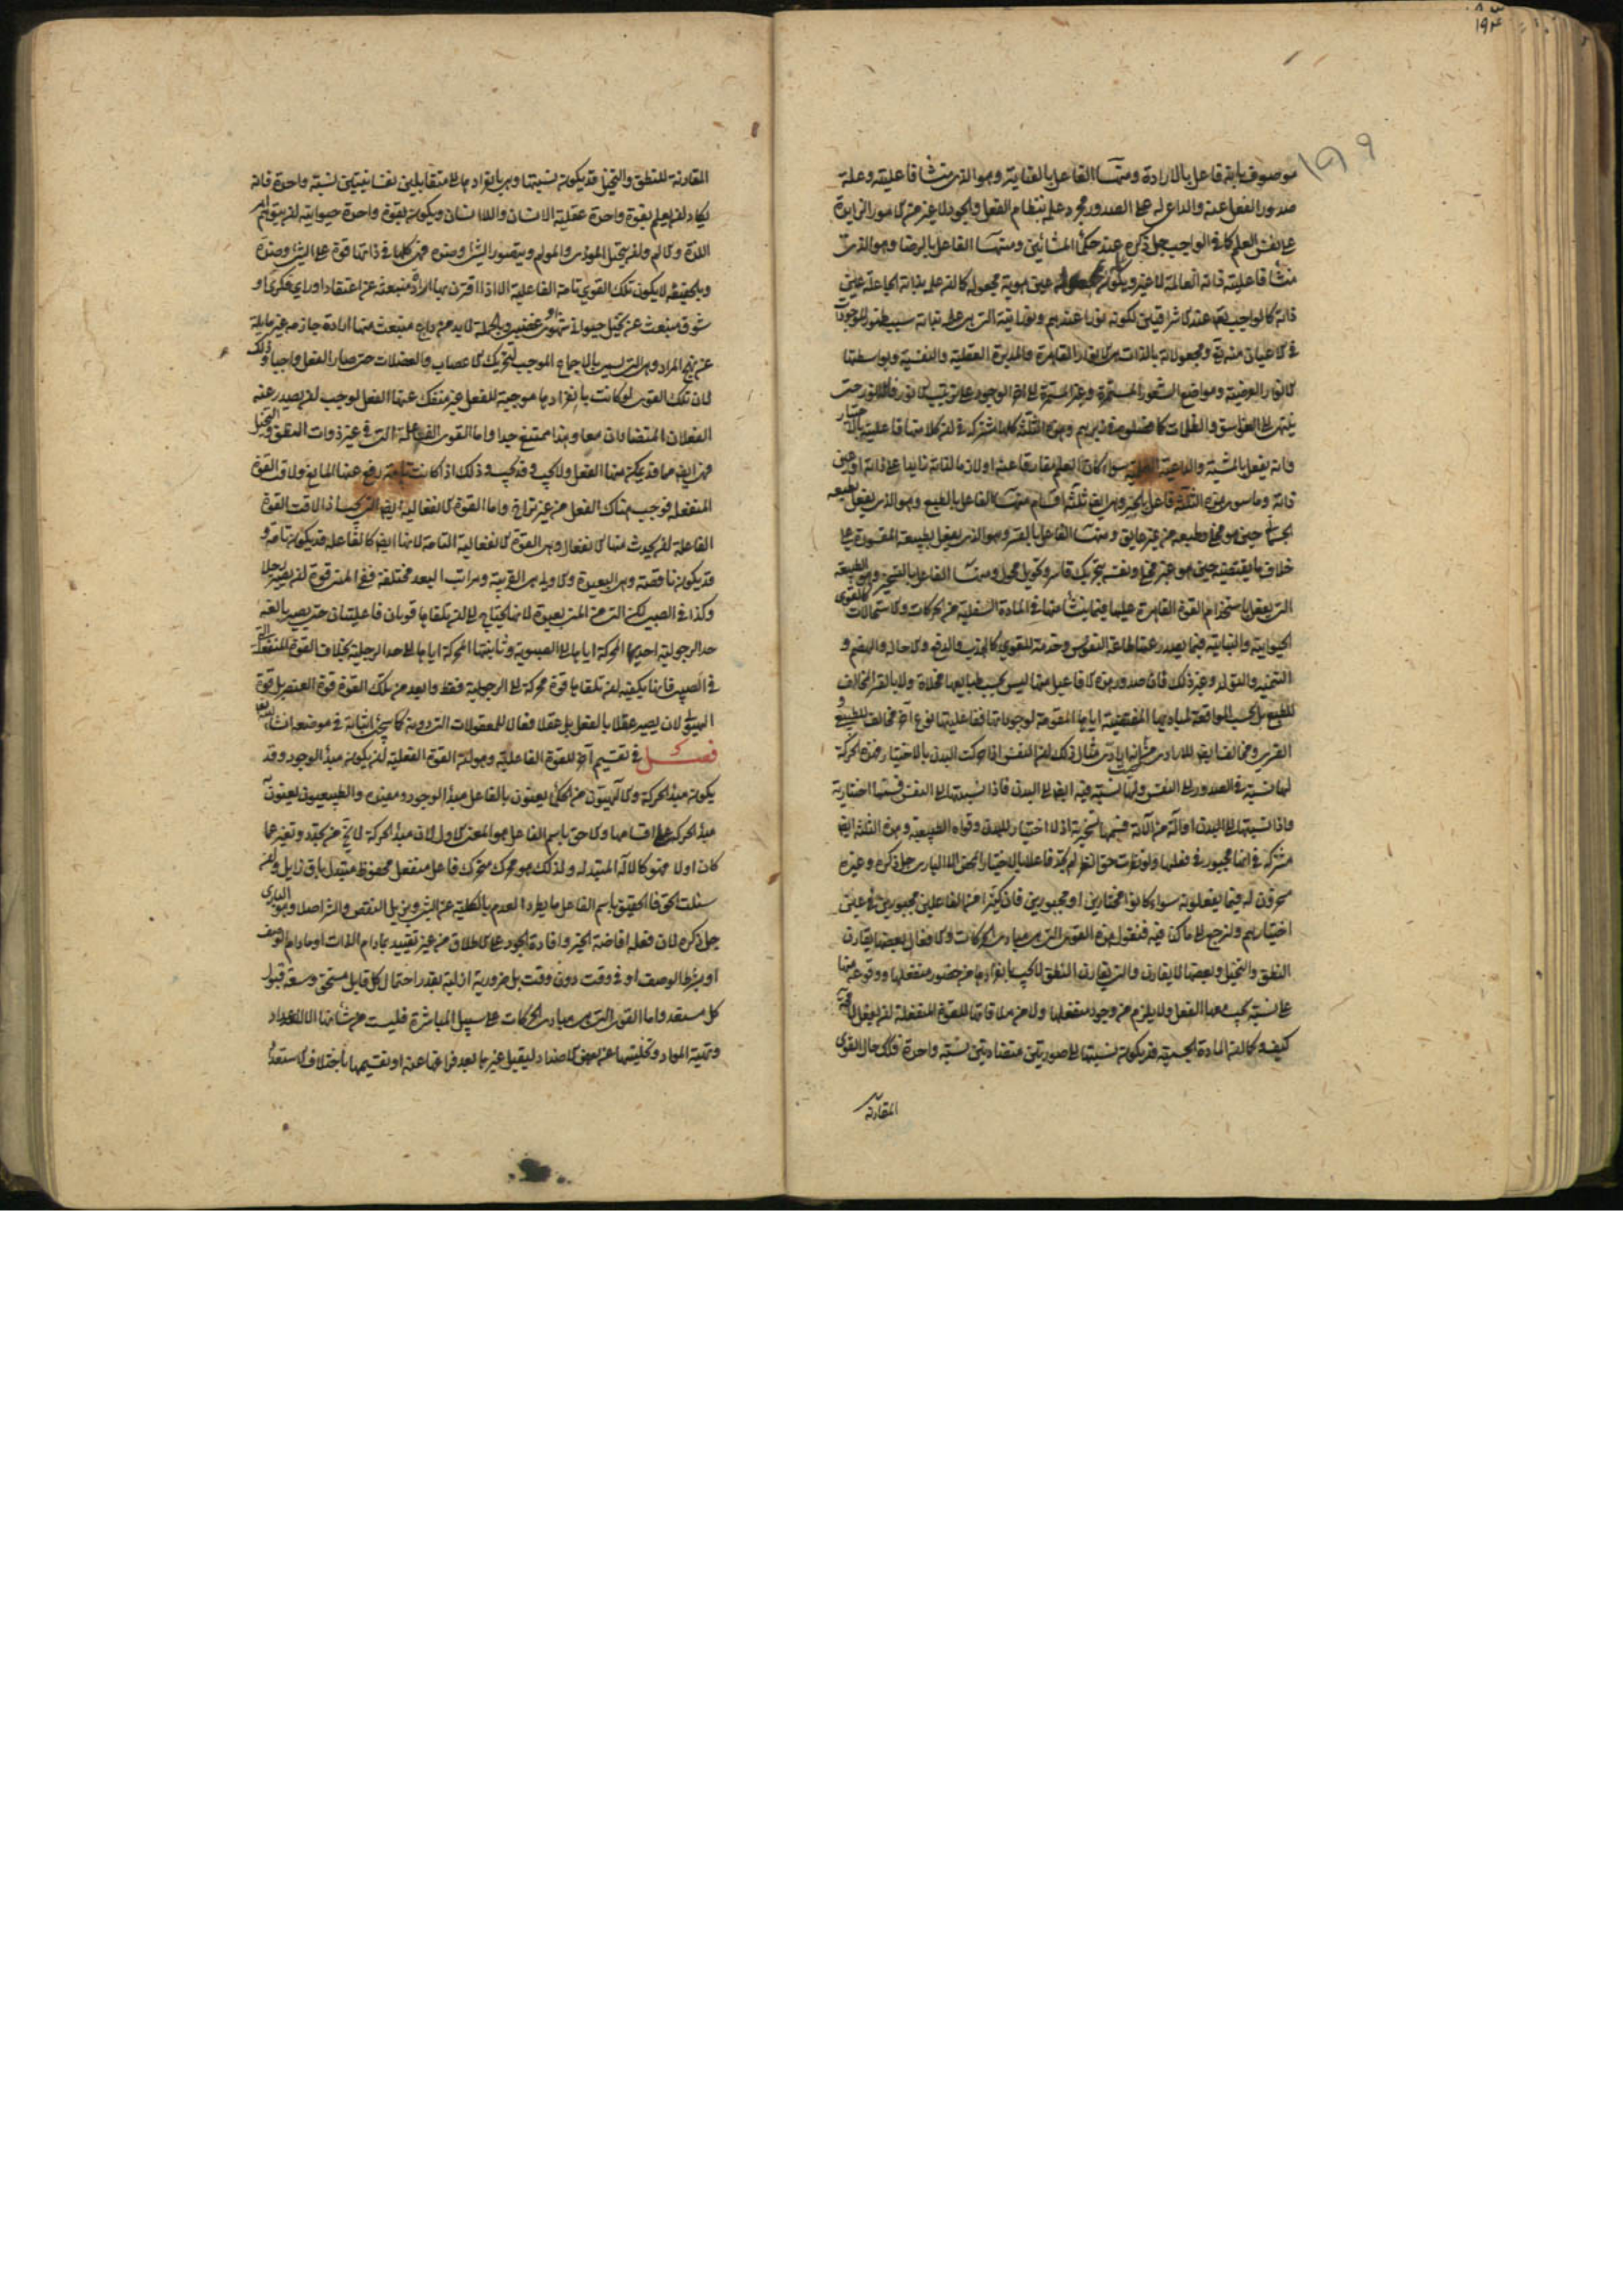 ١٩٤
١٥٩
موصوف بانه فاعل بالارادة ومنها الفاعل بالعناية وهو الذى منشا فاعليته وعلة
صدور الفعل عنه والداعى له على الصدور مجرد علمه بنظام الفعل والجود لا غير من الامور الزايدة
على نفس العلم كما فى الواجب جل ذكره عند حكماء المشائين ومنها الفاعل بالرضا وهو الذى
منشا فاعليته ذاته العالمة لا غير ويكون عين هوية مجعوله كما ان علمه بذاته الجاعلة عين
ذاته كالواجب تعالى عند الاشراقيين لكونه نورا عندهم ونوريته التى هى علمه بذاته سبب ظهور الموجودات
فى الاعيان منه ومجعولاته بالذات هى الانوار القاهرة والمدبرة العقلية والنفسية وبواسطتها
الانوار العرضية ومواضع الشعور المستمرة وغير المستمرة الى اخر الوجود على ترتيب الانور فالانور حتى
ينتهى الى الغواسق والظلمات وهذه الثلثة كلها مشتركة فى ان كلا منها فاعليته بالاختيار
وانه يفعل بالمشية سواء كان العلم يقارنها عنه او لا زايدا على ذاته او عين
ذاته وما سوى هذه الثلثة فاعل بالجبر وهى ايضا ثلثة اقسام منها الفاعل بالطبع وهو الذى يفعل بطبيعته
الجسمانية حين هو مخلى وطبيعته من غير عايق ومنها الفاعل بالقسر وهو الذى يفعل بطبيعته المقسورة على
خلاف ما يقتضيه حين هو غير مخلى ونفسه بتحريك قاسر وتحويل محول ومنها الفاعل بالتسخير وهو الطبيعة
التى يفعل باستخدام القوة القاهرة عليها فيما ينشا منها فى المادة السفلية من الحركات والاستحالات كالقوى
الحيوانية والنباتية فيما يصدر عنها طاعة للنفوس وخدمة للقوى كالجذب والدفع والاحالة والهضم و
التنمية والتوليد وغير ذلك فان صدور هذه الافاعيل منها ليس بحسب طبايعها مخلاة ولا بالقسر المخالف
للطبع بل بحسب الموافقة لمباديها المقتضية اياها المقومة لوجوداتها ففاعليتها نوع اخر مخالف للطبيعى و
القسرى ومخالف ايضا للارادى مثال ذلك ان النفس اذا حركت البدن بالاختيار فهذه الحركة
لها نسبة فى الصدور الى النفس ولها نسبة فيه ايضا الى البدن فاذا نسبتها الى النفس فسمها اختيارية
واذا نسبتها الى البدن او آلة من آلاته فسمها تسخيرية اذ لا اختيار للبدن وقواه الطبيعية وهذه الثلثة ايضا
مشتركة فى انها مجبورة فى فعلها ولو نظرت حق النظر لم تجد فاعلا بالاختيار المحض الا البارى جل ذكره وغيره
مسخرون له فيما يفعلونه سواء كانوا مختارين او مجبورين فان كثيرا من الفاعلين مجبورين فى عين
اختيارهم ولنرجع الى ما كنا فيه فنقول هذه القوى التى هى مبادى الحركات والافعال بعضها يقارن
النطق والتخيل وبعضها لا يقارن والتى يقارن النطق لا يجب بانفرادها من حضور منفعلها ووقوعه منها
على نسبة يجب معها الفعل ولا يلزم من وجود منفعلها ولا من ملاقاتها للقوة المنفعلة ان يفعل لا محالة
كيف وكما ان المادة الجسمية قد يكون نسبتها الى صورتين متضادتين نسبة واحدة فكك حال القوى
المقارنة
المقارنة للنطق والتخيل قد يكون نسبتها وهى بانفرادها الى متقابلين نفسانيتين نسبة واحدة فانه
يكاد ان يعلم بقوة واحدة عقلية الانسان واللاانسان ويكون بقوة واحدة حيوانية ان يتوهم امر
اللذة والالم وان يتخيل الموذى والمولم ويتصور الشئ وضده فهى كلها فى ذاتها قوة على الشئ وضده
وبالحقيقة لا يكون تلك القوى تامة الفاعلية الا اذا اقترن بها ارادة منبعثة عن اعتقاد او راى فكرى او
شوق منبعث عن تخيل حيوانى شهوى او غضبى وبالجملة لا بد من داع منبعث منها ارادة جازمة غير مايلة
عن نهج المراد وهى التى تسمى بالاجماع الموجب لتحريك الاعصاب والعضلات حتى صار الفعل واجبا وذلك
لان تلك القوى لو كانت بانفرادها موجبة للفعل غير منفك عنها الفعل لوجب ان يصدر عنه
الفعلان المتضادان معا وهذا ممتنع جدا واما القوى الفاعلة التى فى غير ذوات النطق والتخيل
فهى ايضا مما قد يمكن منها الفعل ولا يجب وقد يجب وذلك اذا كانت تامة رفع عنها المانع ولاقت القوة
المنفعلة فوجب هناك الفعل من غير تراخ واما القوة الانفعالية ايضا التى يجب اذا لاقت القوة
الفاعلة ان يحدث منها الانفعال وهى القوة الانفعالية التامة لانها ايضا كالفاعلة قد يكون تامة و
قد يكون ناقصة وهى البعيدة والاولى هى القريبة ومراتب البعد مختلفة ففى المنى قوة ان يصير رجلا
وكذا فى الصبى لكن التى فى المنى بعيدة لانها يحتاج الى ان تلقاها قوتان فاعليتان حتى يصير بالغة
حد الرجولية احديهما المحركة اياها الى الصبوية وثانيتها المحركة اياها الى حد الرجلية بخلاف القوة المنفعلة التى
فى الصبى فانها يكفيه ان تلقاها قوة محركة الى الرجولية فقط وابعد من تلك القوة قوة العنصر بل قوة
الهيولى لان يصير عقلا بالفعل بل عقلا فعالا للمعقولات التى دونه كما سيجئ اثباته فى موضعه انشاء الله تعالى
فصل فى تقسيم اخر للقوة الفاعلية وهو ان القوة الفعلية قد يكون مبدأ الوجود وقد
يكون مبدأ الحركة والالهيون من الحكماء يعنون بالفاعل مبدأ الوجود ومفيده والطبيعيون يعنون به
مبدأ الحركة على اقسامها والاحق باسم الفاعل هو المعنى الاول لان مبدأ الحركة لا يخ من تجدد وتغير عما
كان اولا فهو كالآلة المتبدلة ولذلك هو محرك متحرك فاعل منفعل محفوظ متبدل باق زايل وان
سئلت الحق فالحقيق باسم الفاعل ما يطرد العدم بالكلية عن الشئ ويزيل النقص والشر اصلا وهو البارى
جل ذكره لان فعله افاضة الخير وافادة الجود على الاطلاق من غير تقييد بمادام الذات او مادام الوصف
او بشرط الوصف او فى وقت دون وقت بل ضرورية ازلية بقدر احتمال كل قابل مستحق وسعة قبول
كل مستعد واما القوى التى هى مبادى الحركات على سبيل المباشرة فليست من شانها الا الاعداد
وتهيئة المواد وتخليتها عن بعض الاضداد ليقبل غيرها بعد فراغها عنه او تقسيمها باختلاف الاستعداد